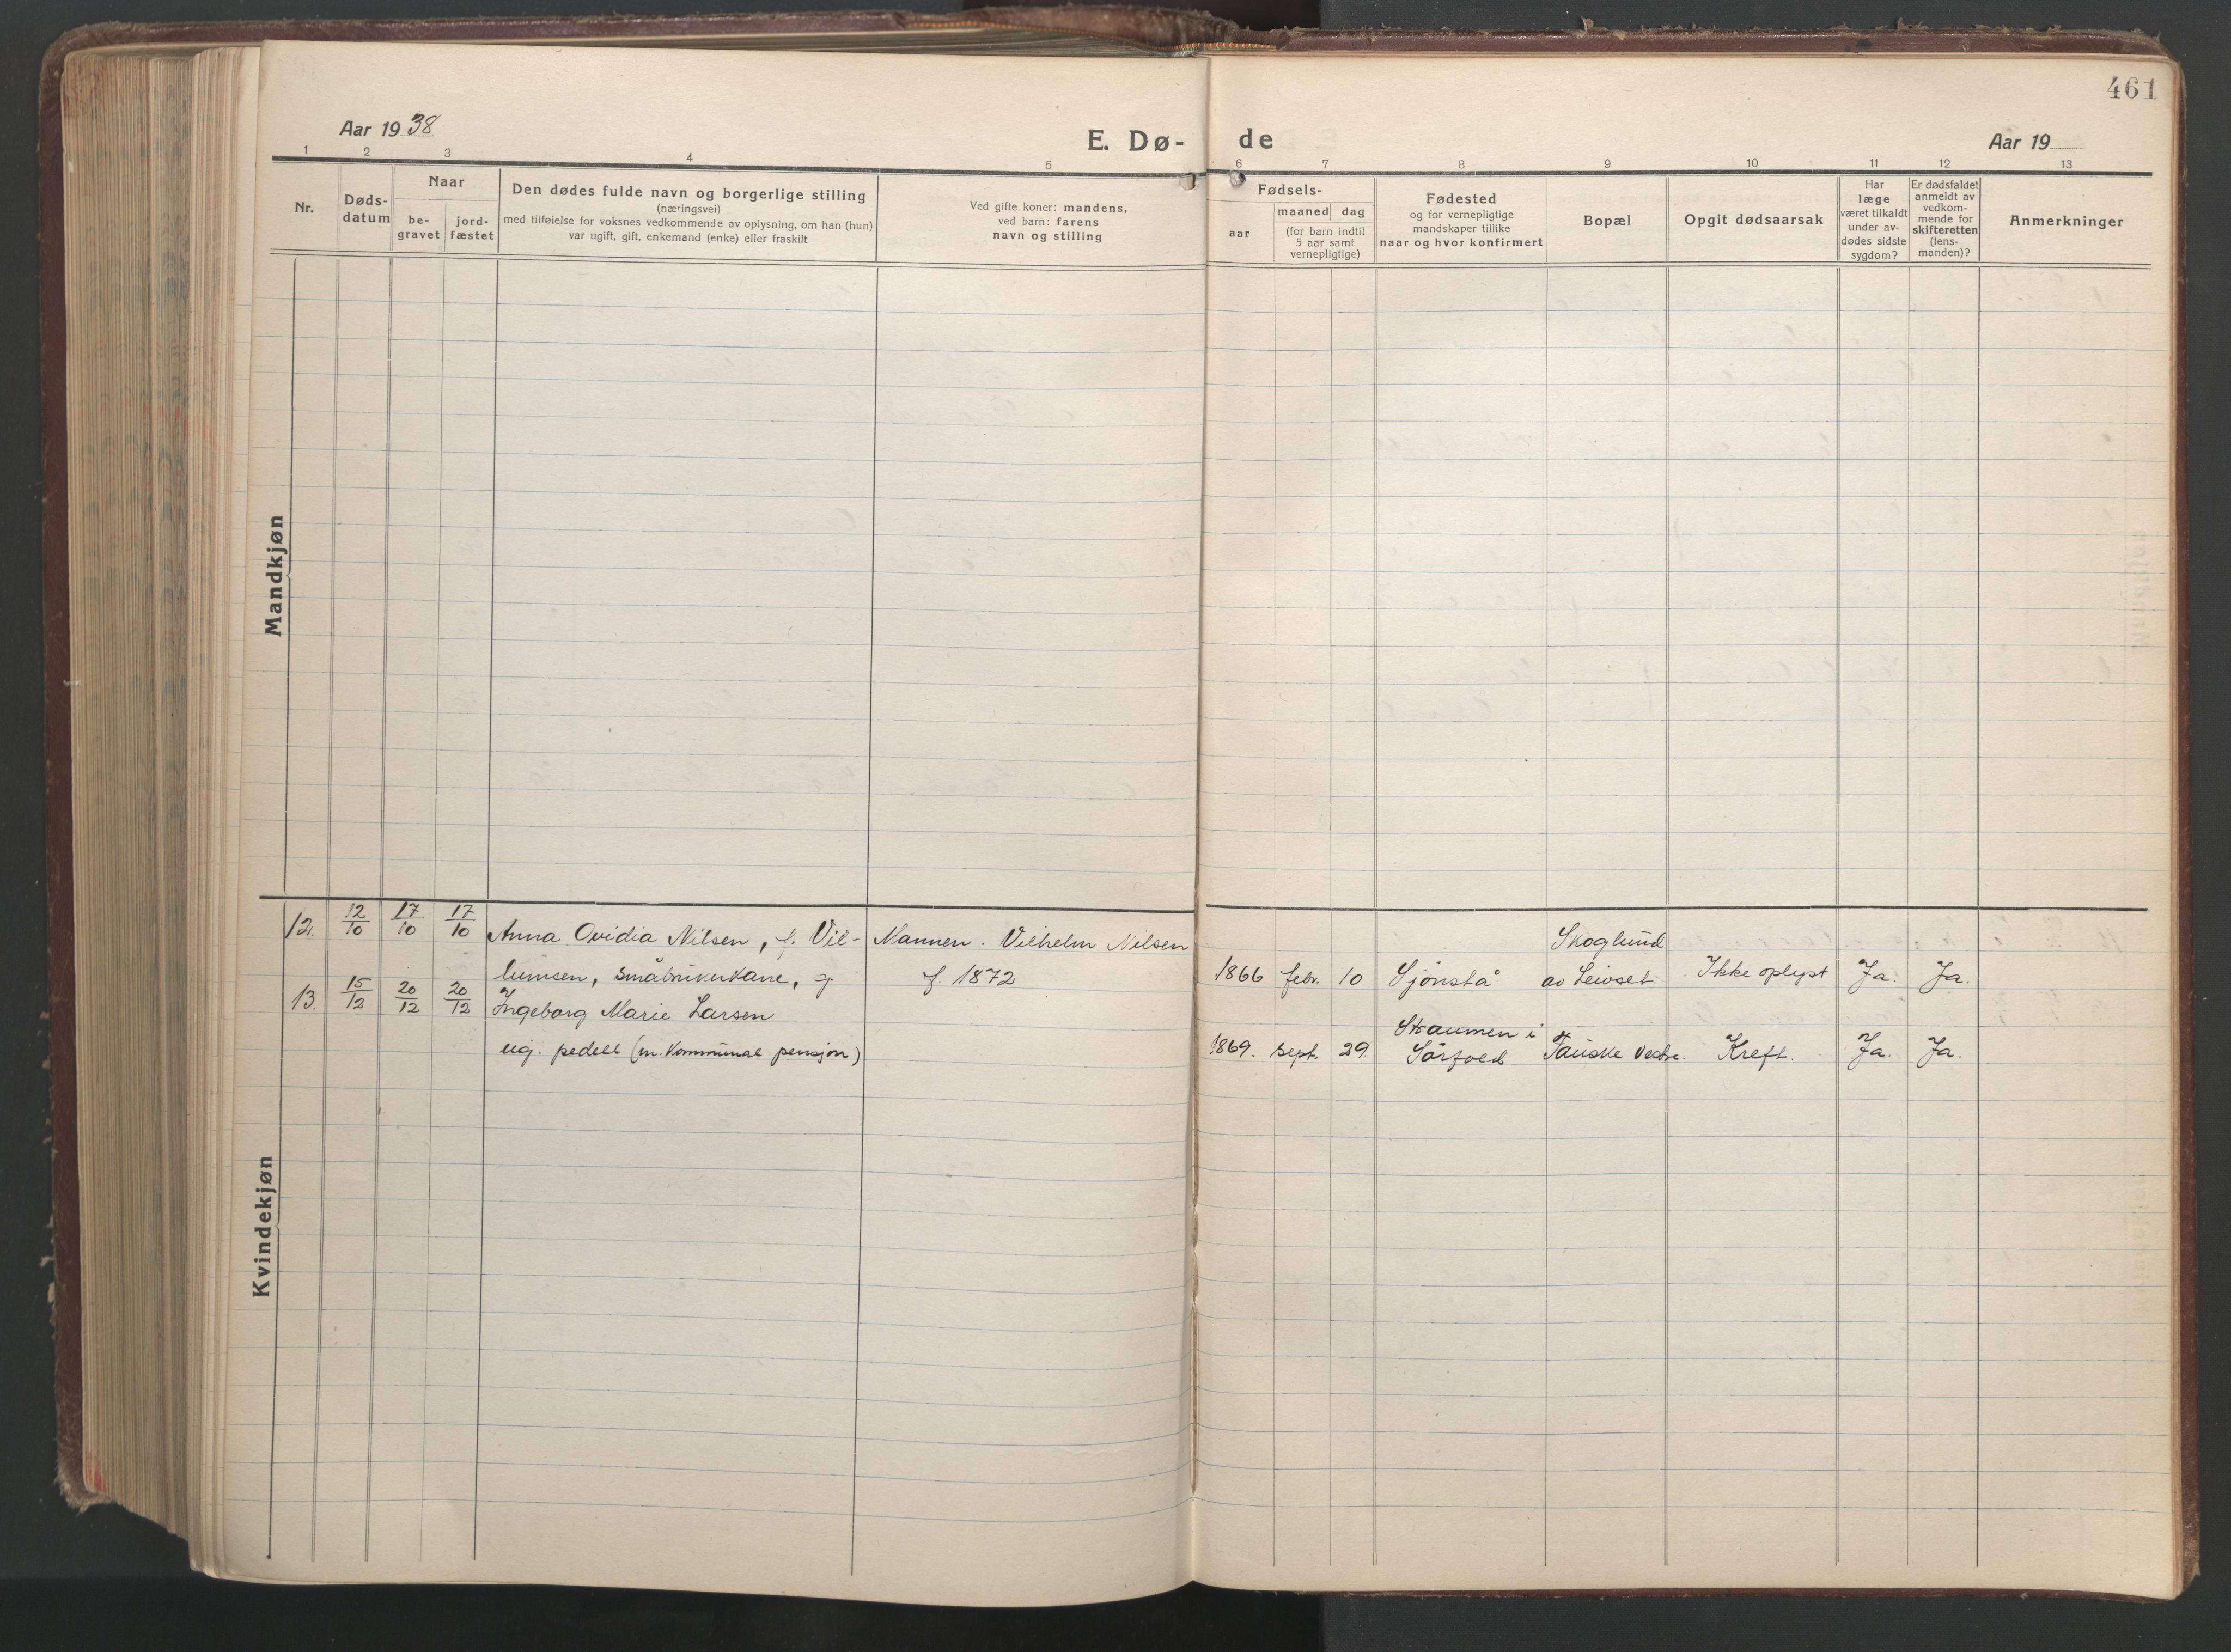 461
Aar 1938
E. Dø-
de
Aar 19
1 2 3 4 5 6 7 8 9 10 11 12 13
Nr.
Døds-
datum
Naar
be-
gravet
jord-
fæstet
Den dødes fulde navn og borgerlige stilling
(næringsvei)
med tilføielse for voksnes vedkommende av oplysning, om han (hun)
var ugift, gift, enkemand (enke) eller fraskilt
Ved gifte koner: mandens,
ved barn: farens
navn og stilling
Fødsels-
aar
maaned dag
(for barn indtil
5 aar samt
vernepligtige)
Fødested
og for vernepligtige
mandskaper tillike
naar og hvor konfirmert
Bopæl
Opgit dødsaarsak
Har
læge
været tilkaldt
under av-
dødes sidste
sygdom?
Er dødsfaldet
anmeldt av
vedkom-
mende for
skifteretten
(lens-
manden)?
Anmerkninger
Mandkjøn
Kvindekjøn
12. 12/10 17/10 17/10 Anna Ovidia Nilsen, f. Vil- Mannen. Vilhelm Nilsen Skoglund
lumsen, småbrukerkane, g f. 1872 1866 febr. 10 Sjönstå av Leivset Ikke oplyst Ja. Ja.
13. 15/12 20/12 20/12 Ingeborg Marie Larsen Straumen i
ug. pedell (m. kommunal pensjon) 1869. sept. 29. Sörfold Fauske Vestre. Kreft. Ja. Ja.